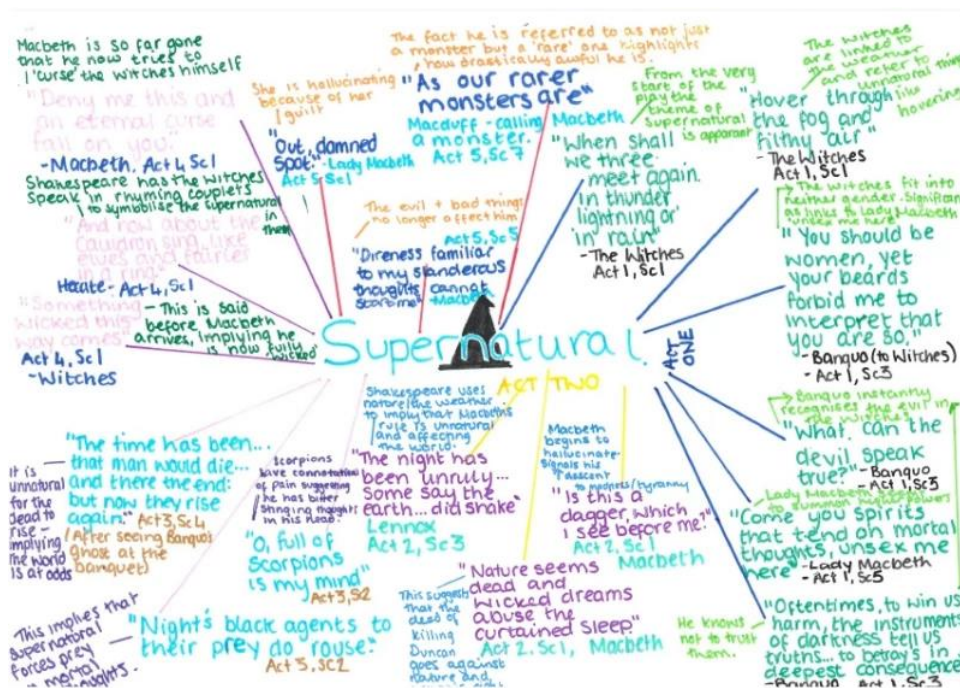 Macbeth is so far gone
that he now tries to
'curse' the witches himself
"Deny me this and
an eternal curse
fall on you."
-Macbeth. Act 4, Sc1
Shakespeare has the witches
speak in rhyming couplets
to symbolise the supernatural
in them
"And now about the
Cauldron sing, like
elves and fairies
in a ring"
Hecate- Act 4, Sc1
"Something
wicked this
way comes"
Act 4, Sc1
-Witches
- This is said
before Macbeth
arrives, implying he
is now fully
'wicked'
She is hallucinating
because of her
guilt
"Out, damned
Spot." - Lady Macbeth
Act 5 Sc1
The fact he is referred to as not just
a monster but a 'rare' one highlights
how drastically awful he is.
"As our rarer
monsters are"
Macduff - calling Macbeth
a monster.
Act 5, Sc7
The evil + bad things
no longer affect him
Act 5, Sc5
"Direness familiar
to my slanderous
thoughts cannot
start me" -Macbeth
From the very
start of the
play the
theme of
supernatural
is apparent
"When shall
we three
meet again.
In thunder
lightning or
in rain"
- The Witches
Act 1, Sc1
The witches
are linked to
weather
and refer to
unnatural things
like
hovering
"Hover through
the fog and
filthy air"
- The Witches
Act 1, Sc1
The witches fit into
neither gender. Significan
as links to Lady Macbeth
'unsex me here'
"You should be
women, yet
your beards
forbid me to
interpret that
you are so."
- Banquo (to Witches)
- Act 1, Sc3
Supernatural.
ACT
ONE
ACT TWO
Banquo instantly
recognises the evil in
the witches
"What, can the
devil speak
true?" - Banquo
- Act 1, Sc3
Lady Macbeth
to summon powers
"Come you spirits
that tend on mortal
thoughts, unsex me
here" - Lady Macbeth
- Act 1, Sc5
He knows
not to trust
them.
"Oftentimes, to win us
harm, the instruments
of darkness tell us
truths... to betray's in
deepest consequence
- Banquo Act 1, Sc3
Shakespeare uses
nature/the weather
to imply that Macbeth's
rule is unnatural
and affecting
the world.
"The night has
been unruly...
Some say the
earth... did shake"
Lennox
Act 2, Sc3
Macbeth
begins to
hallucinate-
signals his
descent
to madness/tyranny
"Is this a
dagger, which
I see before me."
Act 2, Sc1
Macbeth
"Nature seems
dead and
wicked dreams
abuse the
curtained sleep"
Act 2. Sc1, Macbeth
This suggests
that the
deed of
killing
Duncan
goes against
nature and
Scorpions
have connotations
of pain suggesting
he has bitter
stinging thoughts
in his head.
"O, full of
Scorpions
is my mind"
Act 3, S2
It is
unnatural
for the
dead to
rise -
implying
the world
is at odds
"The time has been...
that man would die...
and there the end:
but now they rise
again." Act 3, Sc4
(After seeing Banquo's
ghost at the
banquet)
This implies that
supernatural
forces prey
mortal
thoughts.
"Night's black agents to
their prey do rouse."
Act 3, SC2